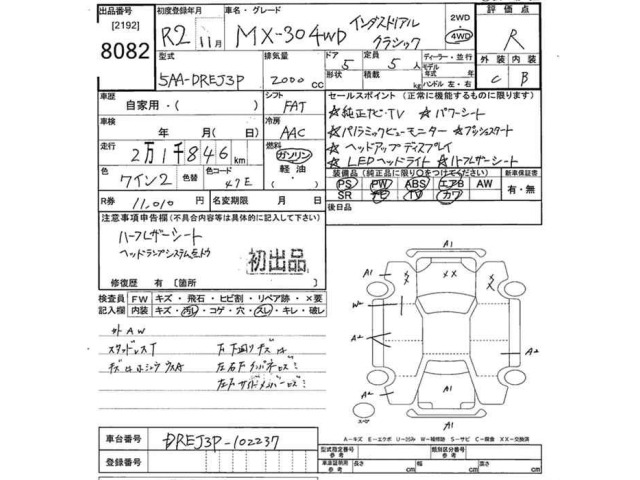 出品番号
[2192]
8082
初度登録年月
R2 11月
車名・グレード
MX-30 4WD インダストリアルクラシック
2WD・4WD
評価点
R
外装 内装
C B
型式
5AA-DREJ3P
排気量
2000 cc
ドア 5
定員 5人
形状
積載 kg
ディーラー・並行
モデル年式 年
ハンドル 左・右
車歴
自家用・( )
シフト
FAT
車検
年 月( 日)
冷房
AAC
走行
2万1千846km
燃料
ガソリン
軽油
・
色
ワイン2
色替
色コード
47E
R券
11,010円
名変期限 月 日
セールスポイント (正常に機能するものに限ります)
☆純正ナビ・TV ☆パワーシート
☆パノラミックビューモニター ☆プッシュスタート
☆ヘッドアップディスプレイ
☆LEDヘッドライト ☆ハーフレザーシート
装備品(純正品に限り○をつけてください)
PS PW ABS エアB AW
SR ナビ TV カワ
新車保証書
有・無
後日品
注意事項申告欄(不具合内容等は具体的に記入して下さい)
ハーフレザーシート
初出品
修復歴 有 [箇所 ]
検査員記入欄
FW キズ・飛石・ヒビ割・リペア跡・×要
内装 キズ・汚レ・コゲ・穴・スレ・キレ・破レ
外AW
スタッドレスT
下廻りキズ
A1
A1
A1
XX
W
A2
A2
A2
A1
A-キズ E-エクボ U-凹み W-補修跡 S-サビ C-腐食 XX-交換済
車台番号 DREJ3P-102237
登録番号
型式指定番号 参考
類別区分番号 参考
車車証明用 参考 長さ cm 幅 cm 高さ cm